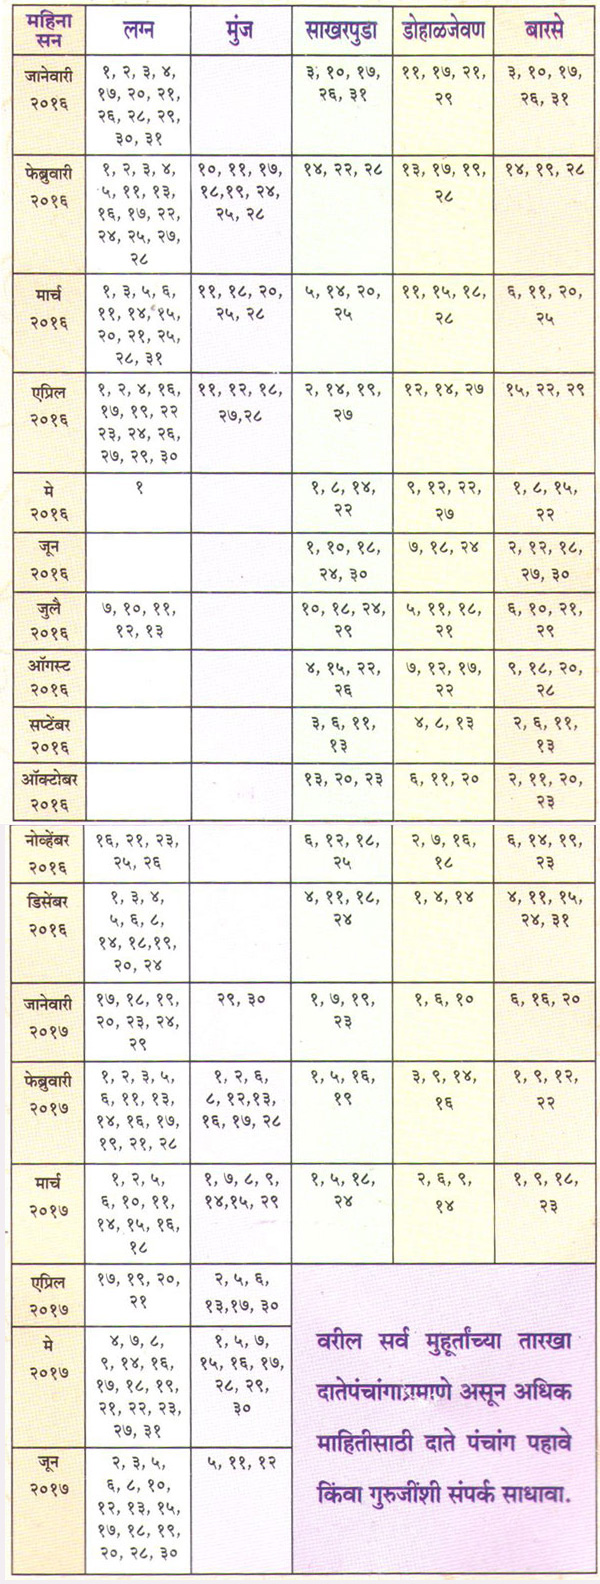 महिना सन लग्न मुंज साखरपुडा डोहाळजेवण बारसे
जानेवारी १, २, ३, ४, ३, १०, १७, ११, १७, २१, ३, १०, १७,
२०१६ १७, २०, २१, २६, ३१ २९ २६, ३१
२६, २८, २९,
३०, ३१
फेब्रुवारी १, २, ३, ४, १०, ११, १७, १४, २२, २८ १३, १७, १९, १४, १९, २८
२०१६ ५, ११, १३, १८,१९, २४, २८
१६, १७, २२, २५, २८
२४, २५, २७,
२८
मार्च १, ३, ५, ६, ११, १८, २०, ५, १४, २०, ११, १५, १८, ६, ११, २०,
२०१६ ११, १४, १५, २५, २८ २५ २८ २५
२०, २१, २५,
२८, ३१
एप्रिल १, २, ४, १६, ११, १२, १८, २, १४, १९, १२, १४, २७ १५, २२, २९
२०१६ १७, १९, २२ २७,२८ २७
२३, २४, २६,
२७, २९, ३०
मे १ १, ८, १४, ९, १२, २२, १, ८, १५,
२०१६ २२ २७ २२
जून १, १०, १८, ७, १८, २४ २, १२, १८,
२०१६ २४, ३० २७, ३०
जुलै ७, १०, ११, १०, १८, २४, ५, ११, १८, ६, १०, २१,
२०१६ १२, १३ २९ २१ २९
ऑगस्ट ४, १५, २२, ७, १२, १७, ९, १८, २०,
२०१६ २६ २२ २८
सप्टेंबर ३, ६, ११, ४, ८, १३ २, ६, ११,
२०१६ १३ १३
ऑक्टोबर १३, २०, २३ ६, ११, २० २, ११, २०,
२०१६ २३
नोव्हेंबर १६, २१, २३, ६, १२, १८, २, ७, १६, ६, १४, १९,
२०१६ २५, २६ २५ १८ २३
डिसेंबर १, ३, ४, ४, ११, १८, १, ४, १४ ४, ११, १५,
२०१६ ५, ६, ८, २४ २४, ३१
१४, १८,१९,
२०, २४
जानेवारी १७, १८, १९, २९, ३० १, ७, १९, १, ६, १० ६, १६, २०
२०१७ २०, २३, २४, २३
२९
फेब्रुवारी १, २, ३, ५, १, २, ६, १, ५, १६, ३, ९, १४, १, ९, १२,
२०१७ ६, ११, १३, ८, १२,१३, १९ १६ २२
१४, १६, १७, १६, १७, २८
१९, २१, २८
मार्च १, २, ५, १, ७, ८, ९, १, ५, १८, २, ६, ९, १, ९, १८,
२०१७ ६, १०, ११, १४,१५, २९ २४ १४ २३
१४, १५, १६,
१८
एप्रिल १७, १९, २०, २, ५, ६,
२०१७ २१ १३,१७, ३०
मे ४, ७, ८, १, ५, ७,
२०१७ ९, १४, १६, १५, १६, १७,
१७, १८, १९, २८, २९,
२१, २२, २३, ३०
२७, ३१
जून २, ३, ५, ५, ११, १२
२०१७ ६, ८, १०,
१२, १३, १५,
१७, १८, १९,
२०, २८, ३०
वरील सर्व मुहूर्तांच्या तारखा
दातेपंचांगाप्रमाणे असून अधिक
माहितीसाठी दाते पंचांग पहावे
किंवा गुरुजींशी संपर्क साधावा.